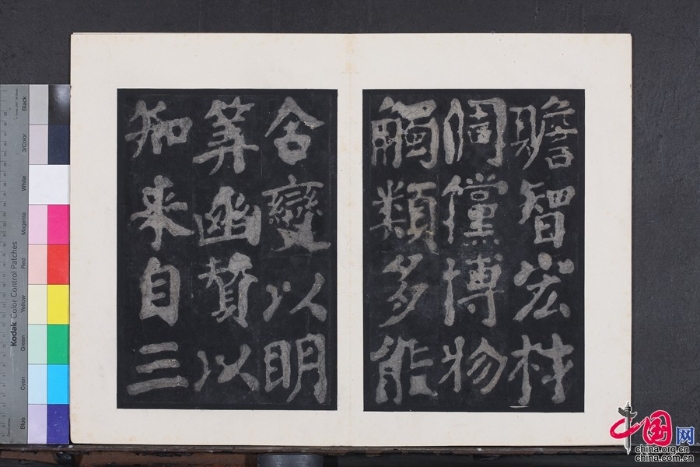 贍智宏材
倜儻博物
觸類多能
合變以明
筭幽贊以
知来自三
Kodak Color Control Patches
Blue
Cyan
Green
Yellow
Red
Magenta
White
3/Color
Black
中国网
china.org.cn
china.com.cn